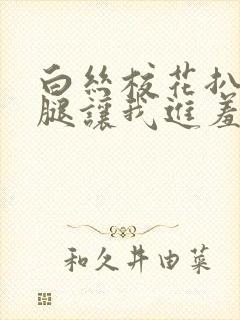 白丝校花扒
腿讓我進羞
和久井由菜